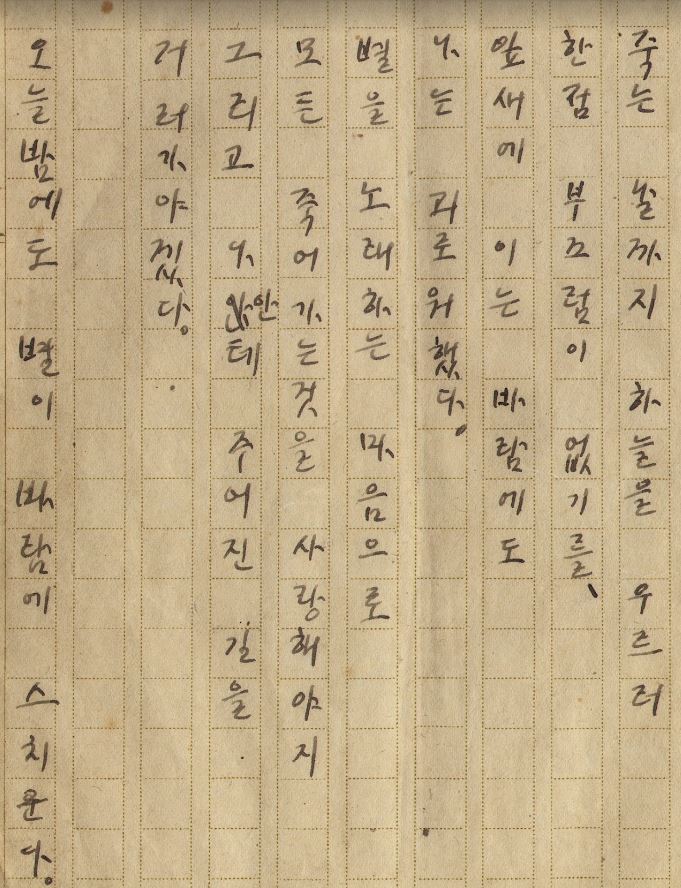 죽는 날까지 하늘을 우르러
한점 부끄럼이 없기를、
잎새에 이는 바람에도
나는 괴로워했다.
별을 노래하는 마음으로
모든 죽어가는것을 사랑해야지
그리고 나안테 주어진 길을
거러가야겠다.
오늘밤에도 별이 바람에 스치운다.